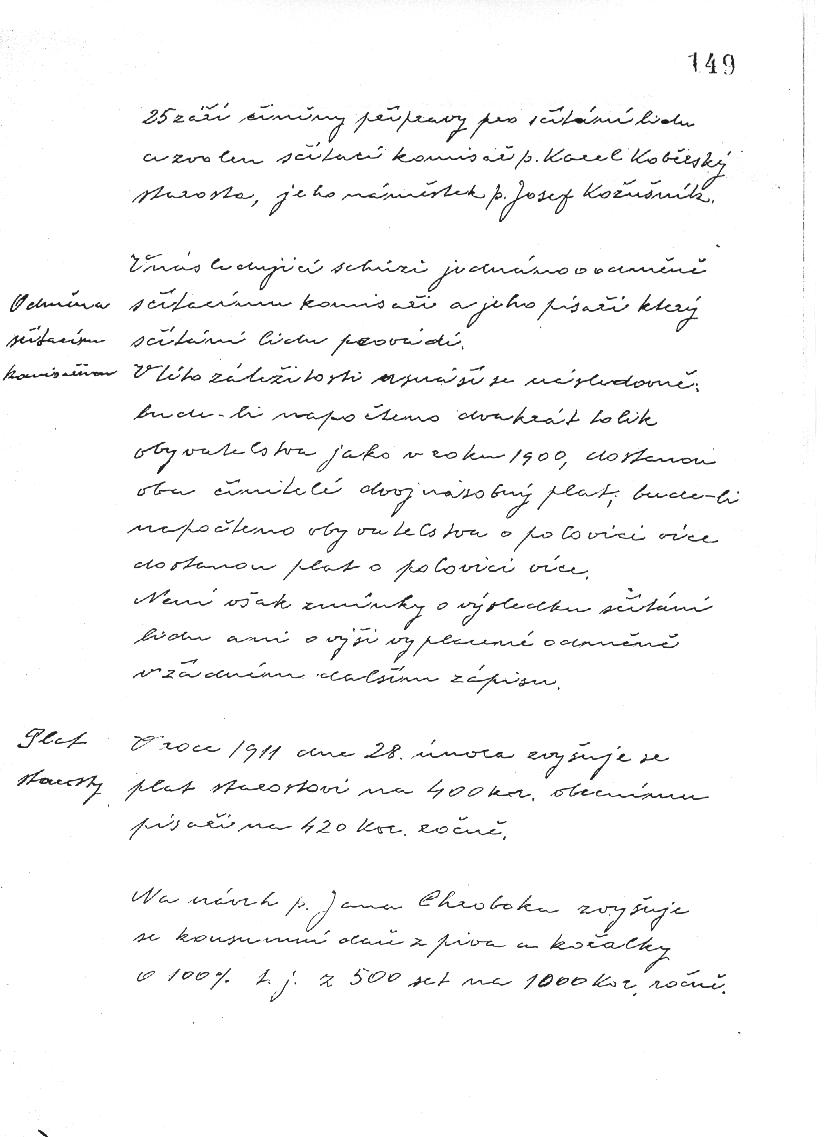 149
25 září činěny přípravy pro sčítání lidu
a zvolen sčítací komisař p. Karel Kobierský
starosta, jeho náměstek p. Josef Kožušník.
V následující schůzi jednáno o odměně
Odměna sčítacímu komisaři a jeho písaři který
sčítacím sčítání lidu provádí.
komisařům V této záležitosti usnáší se následovně:
bude-li napočteno dvakrát tolik
obyvatelstva jako v roku 1900, dostanou
oba činitelé dvojnásobný plat; bude-li
napočteno obyvatelstva o polovici více
dostanou plat o polovici více.
Není však zmínky o výsledku sčítání
lidu ani o výši vyplacené odměně
v žádném dalším zápisu.
Plat V roce 1911 dne 28. února zvyšuje se
starosty plat starostovi na 400 kor. obecnímu
písaři na 420 Kor. ročně.
Na návrh p. Jana Chroboka zvyšuje
se konsumní daň z piva a kořalky
o 100% t. j. z 500 set na 1000 Kor. ročně.